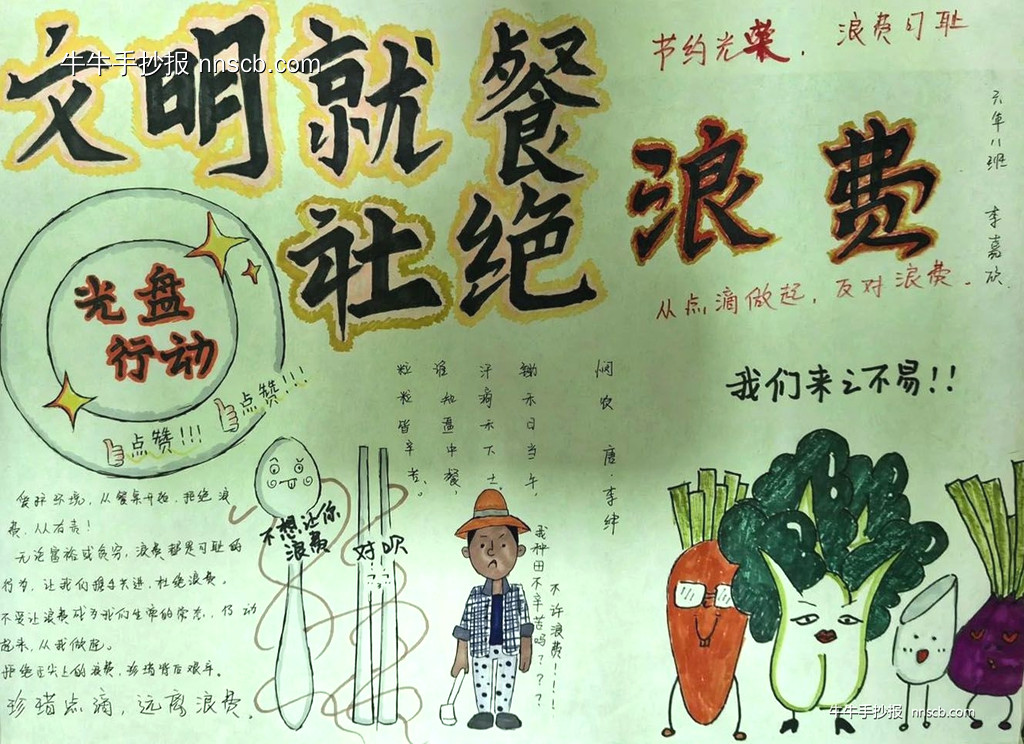 牛牛手抄报 nnscb.com
文明就餐
杜绝
浪费
节约光荣，浪费可耻
六年八班 李嘉欣
从点滴做起，反对浪费。
光盘
行动
点赞!!!
点赞!!!
我们来之不易!!
悯农 唐·李绅
锄禾日当午，
汗滴禾下土。
谁知盘中餐，
粒粒皆辛苦。
不想让你
浪费
对呗
我种田不辛苦吗????
不许浪费!!!
保护环境，从餐桌开始，拒绝浪
费，从有责！
无论富裕或贫穷，浪费都是可耻的
行为，让我们携手共进，杜绝浪费。
不要让浪费成为我们生常的常态，行动
起来，从我做起。
拒绝舌尖上的浪费，珍惜背后艰辛。
珍惜点滴，远离浪费。
牛牛手抄报 nnscb.com